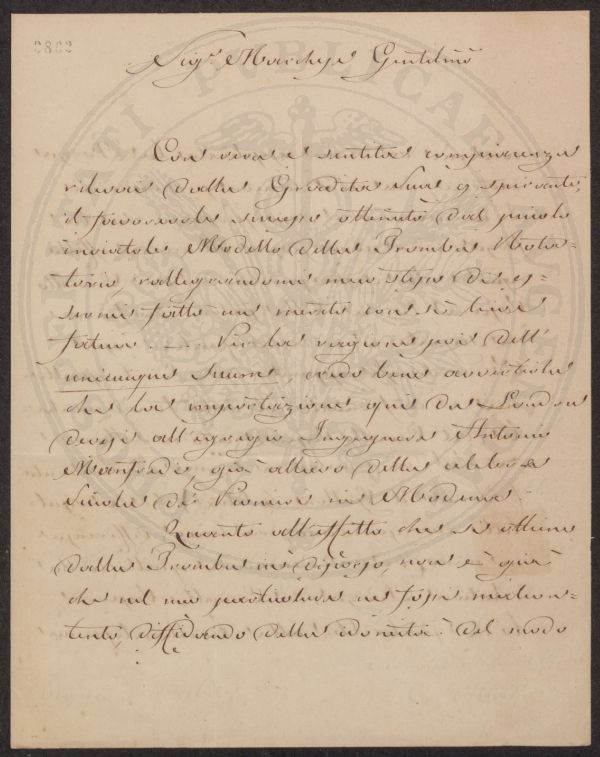 2802
Sigr. Marchese Gentilmo
Con viva e sentita compiacenza
rilevai dalla Gradita Sua q. spirante,
il favorevole successo ottenuto dal piccolo
inviatole Modello della Tromba Rota-
toria, rallegrandomi meco stesso di es-
sermi fatto un merito con sì lieve
fatica. — Per la ragione poi dell'
unicuique suum, credo bene avvertirla
che la importazione qui da Londra
devesi all'egregio Ingegnere Antonio
Manfredi, già allievo della celebre
Scuola de' Pionieri in Modena.
Quanto all'effetto che si ottiene
dalla Tromba in discorso, non è già
che nel mio particolare ne fossi malcon-
tento, diffidando della idoneità del modo